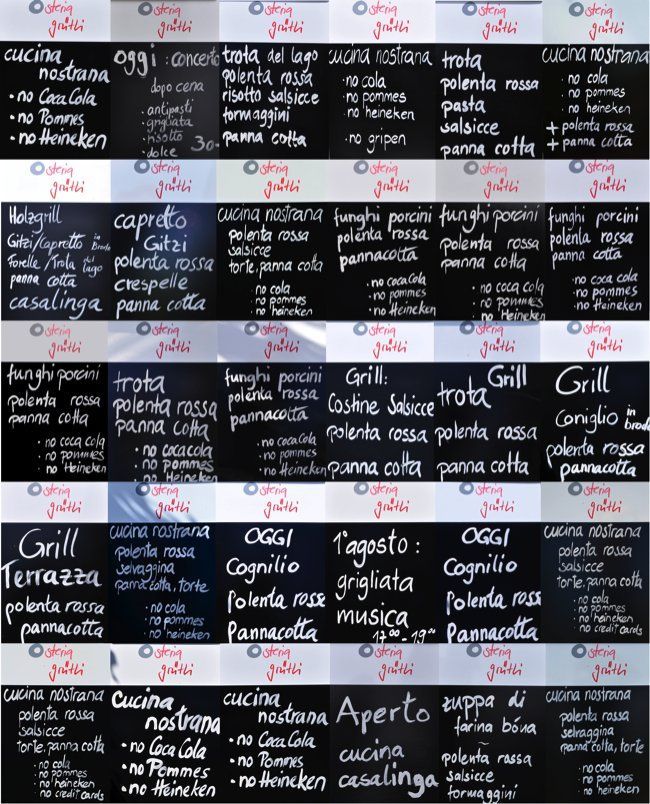 Osteria
grütli
cucina
nostrana
• no Coca Cola
• no Pommes
• no Heineken
Osteria
grütli
oggi : concerto
dopo cena
• antipasti
• grigliata
• risotto
• dolce 30.-
Osteria
grütli
trota del lago
polenta rossa
risotto salsicce
formaggini
panna cotta
Osteria
grütli
cucina nostrana
• no cola
• no pommes
• no heineken
• no gripen
Osteria
grütli
trota
polenta rossa
pasta
salsicce
panna cotta
Osteria
grütli
cucina nostrana
• no cola
• no pommes
• no heineken
+ polenta rossa
+ panna cotta
Osteria
grütli
Holzgrill
Gitzi/Capretto in Brodo
Forelle/Trota del lago
panna cotta
casalinga
Osteria
grütli
capretto
Gitzi
polenta rossa
crespelle
panna cotta
Osteria
grütli
cucina nostrana
polenta rossa
salsicce
torte, panna cotta
• no cola
• no pommes
• no heineken
Osteria
grütli
funghi porcini
polenta rossa
pannacotta
• no coca Cola
• no pommes
• no Heineken
Osteria
grütli
funghi porcini
polenta rossa
panna cotta
• no coca cola
• no pommes
• no Heineken
Osteria
grütli
funghi porcini
polenla rossa
panna cotta
• no coca cola
• no pommes
• no Heineken
Osteria
grütli
funghi porcini
polenta rossa
panna cotta
• no coca cola
• no pommes
• no Heineken
Osteria
grütli
trota
polenta rossa
panna cotta
• no cocacola
• no pommes
• no Heineken
Osteria
grütli
funghi porcini
polenta rossa
pannacotta
• no coca Cola
• no pommes
• no Heineken
Osteria
grütli
Grill:
Costine Salsicce
polenta rossa
panna cotta
Osteria
grütli
Grill
trota
polenta rossa
panna cotta
Osteria
grütli
Grill
Coniglio in brodo
polenta rossa
pannacotta
Osteria
grütli
Grill
Terrazza
polenta rossa
pannacotta
Osteria
grütli
cucina nostrana
polenta rossa
selvaggina
panna cotta, torte
• no cola
• no pommes
• no heineken
Osteria
grütli
OGGI
Cognilio
Polenta rosse
Pannacotta
Osteria
grütli
1° agosto :
grigliata
musica
17°° - 19°°
Osteria
grütli
OGGI
Cognilio
Polenta ross
Pannacotta
Osteria
grütli
cucina nostrana
polenta rossa
salsicce
torte, panna cotta
• no cola
• no pommes
• no heineken
• no credit cards
Osteria
grütli
cucina nostrana
polenta rossa
salsicce
torte, panna cotta
• no cola
• no pommes
• no heineken
• no credit cards
Osteria
grütli
Cucina
nostrana
• no Coca Cola
• no Pommes
• no Heineken
Osteria
grütli
cucina
nostrana
• no Coca Cola
• no Pommes
• no Heineken
Osteria
grütli
Aperto
cucina
casalinga
Osteria
grütli
zuppa di
farina bóna
~
polenta rassa
salsicce
formaggini
Osteria
grütli
cucina nostrana
polenta rossa
selvaggina
panna cotta, torte
• no cola
• no pommes
• no heineken